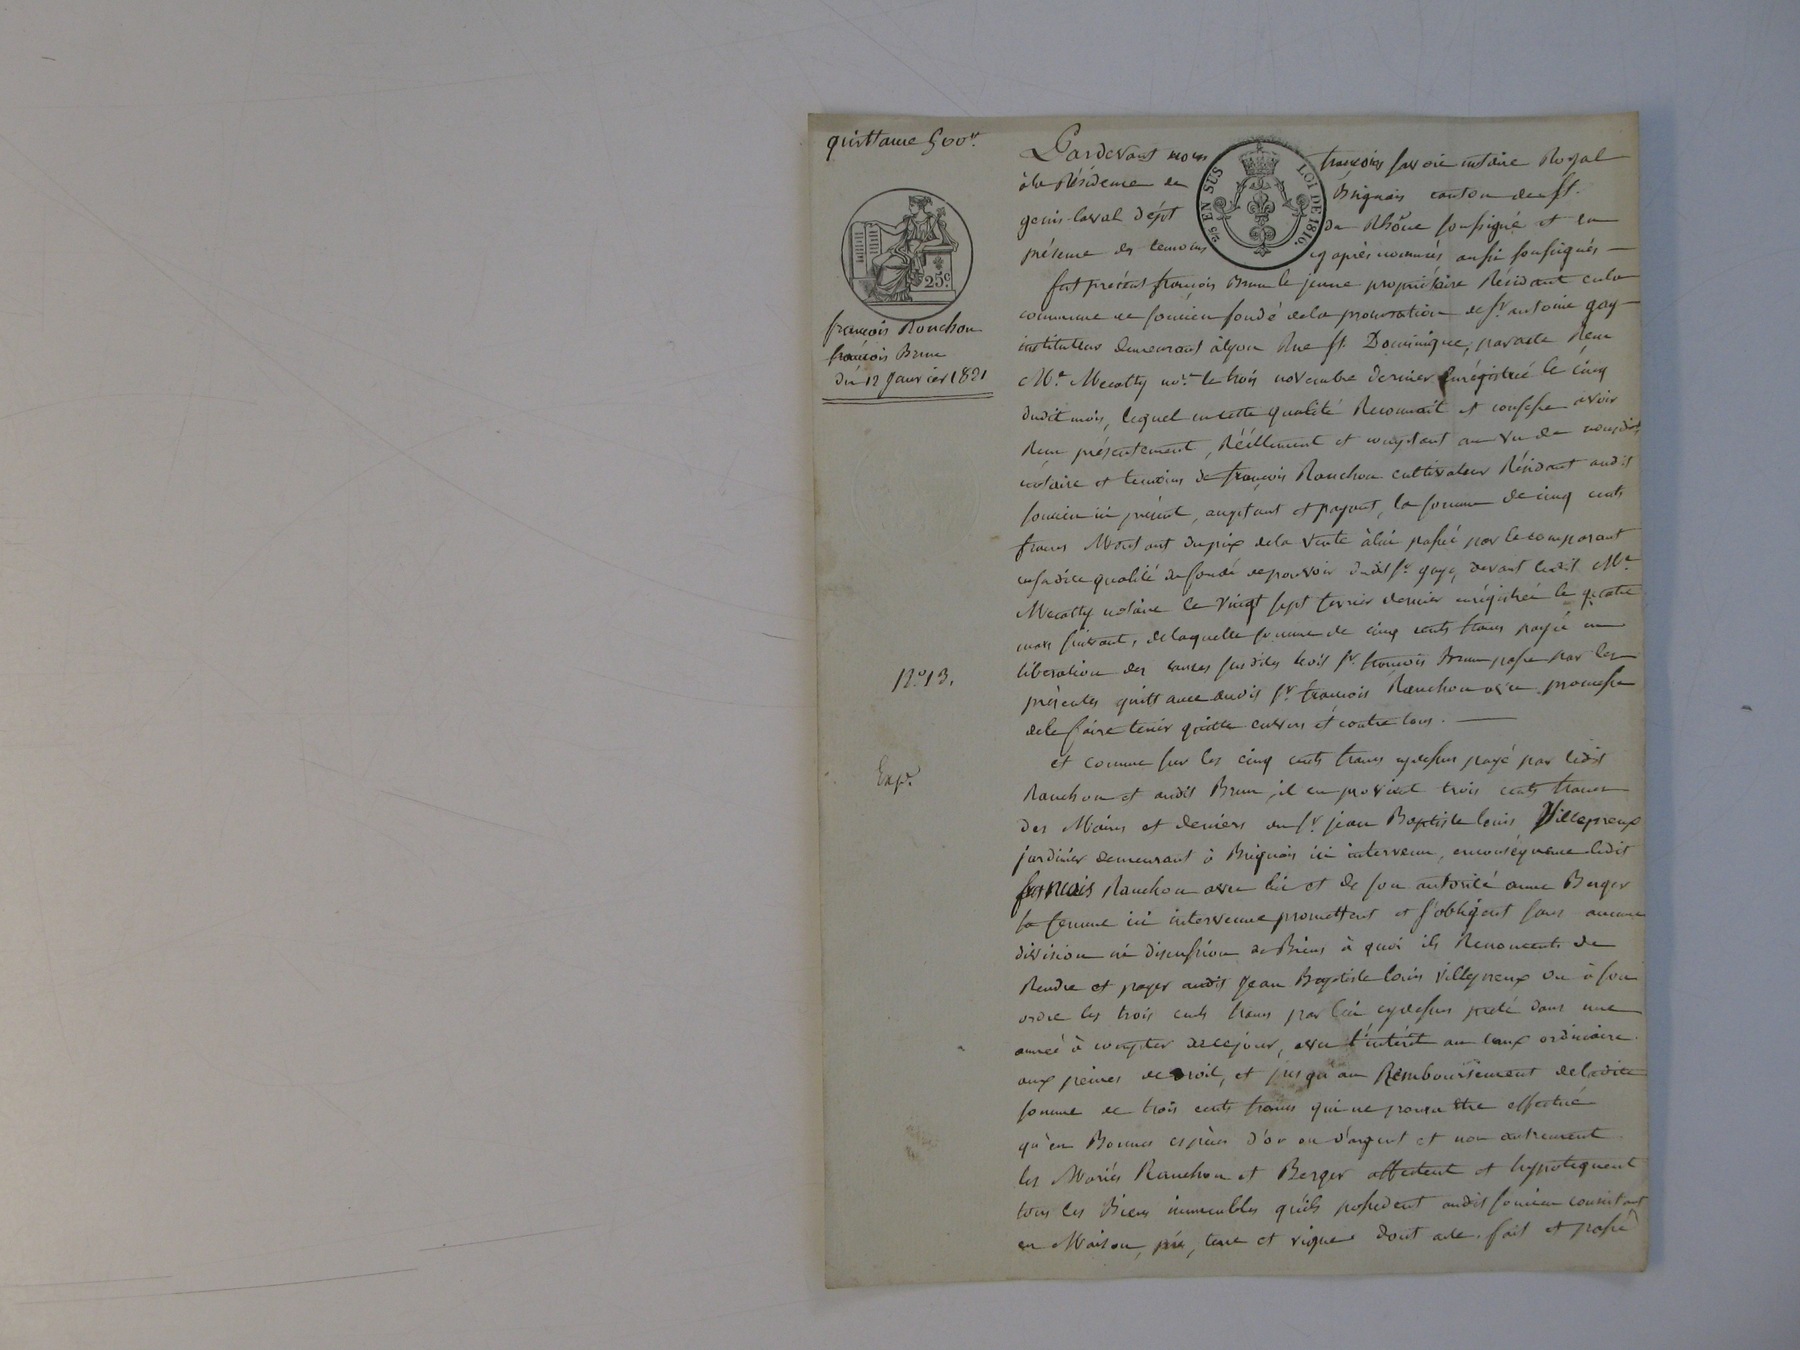 quittance 500ᶠ.
25ᶜ
françois Ranchon
françois Brun
du 12 Janvier 1821
N.º 13.
Exp.ᵉ
EN SUS LOI DE 1816.
Pardevant nous françois savoie notaire Royal
à la Résidence de Brignais canton de st.
genis-laval dépt du Rhône soussigné et en
présence des temoins cy après nommés aussi soussignés —
fut présent françois Brun le jeune propriétaire Résidant en la
commune de soucieu fondé de la procuration de sr. antoine gay —
instituteur demeurant à lyon Rue st Dominique, par acte Reçu
Me. Mecatty no.re le trois novembre dernier Enrégistré le cinq
dudit mois, lequel en cette qualité Reconnait et confesse avoir
Reçu présentement, Réellement et comptant au vu de nousdit
notaire et temoins de françois Ranchon cultivateur Résidant audit
soucieu ici présent, acceptant et payant, la somme de cinq cents
francs Montant du prix de la vente à lui passée par le comparant
en sadite qualité de fondé de pouvoir dudit sr. gay, devant ledit Me.
Mecatty notaire le vingt sept fevrier dernier enrégistrée le quatre
mars suivant, de laquelle somme de cinq cents francs payée en
liberation des causes susdites ledit sr. françois Brun passe par les
présentes quittance audit sr. françois Ranchon avec promesse
de le faire tenir quitte envers et contre tous. —
et comme sur les cinq cents francs cydessus payé par ledit
Ranchon et audit Brun, il en provient trois cents francs
des Mains et deniers du sr. jean Baptiste louis Villepreux
jardinier demeurant à Brignais ici intervenu, en conséquence ledit
françois Ranchon avec lui et de son autorité anne Berger
sa femme ici intervenue promettent et s'obligent sans aucune
division ni discussion de Biens à quoi ils Renoncent de
Rendre et payer audit Jean Baptiste louis villepreux ou à son
ordre les trois cents francs par lui cydessus preté dans une
année à compter de ce jour, avec l'intérêt au taux ordinaire
aux peines de Droit, et jusqu'au Remboursement de ladite
somme de trois cents francs qui ne pourra être effectué
qu'en Bonnes espèces d'or ou d'argent et non autrement
les Mariés Ranchon et Berger affectent et hypotequent
tous les Biens immeubles qu'ils possedent audit soucieu consistant
en Maison, pré, terre et vigne dont acte. fait et passé